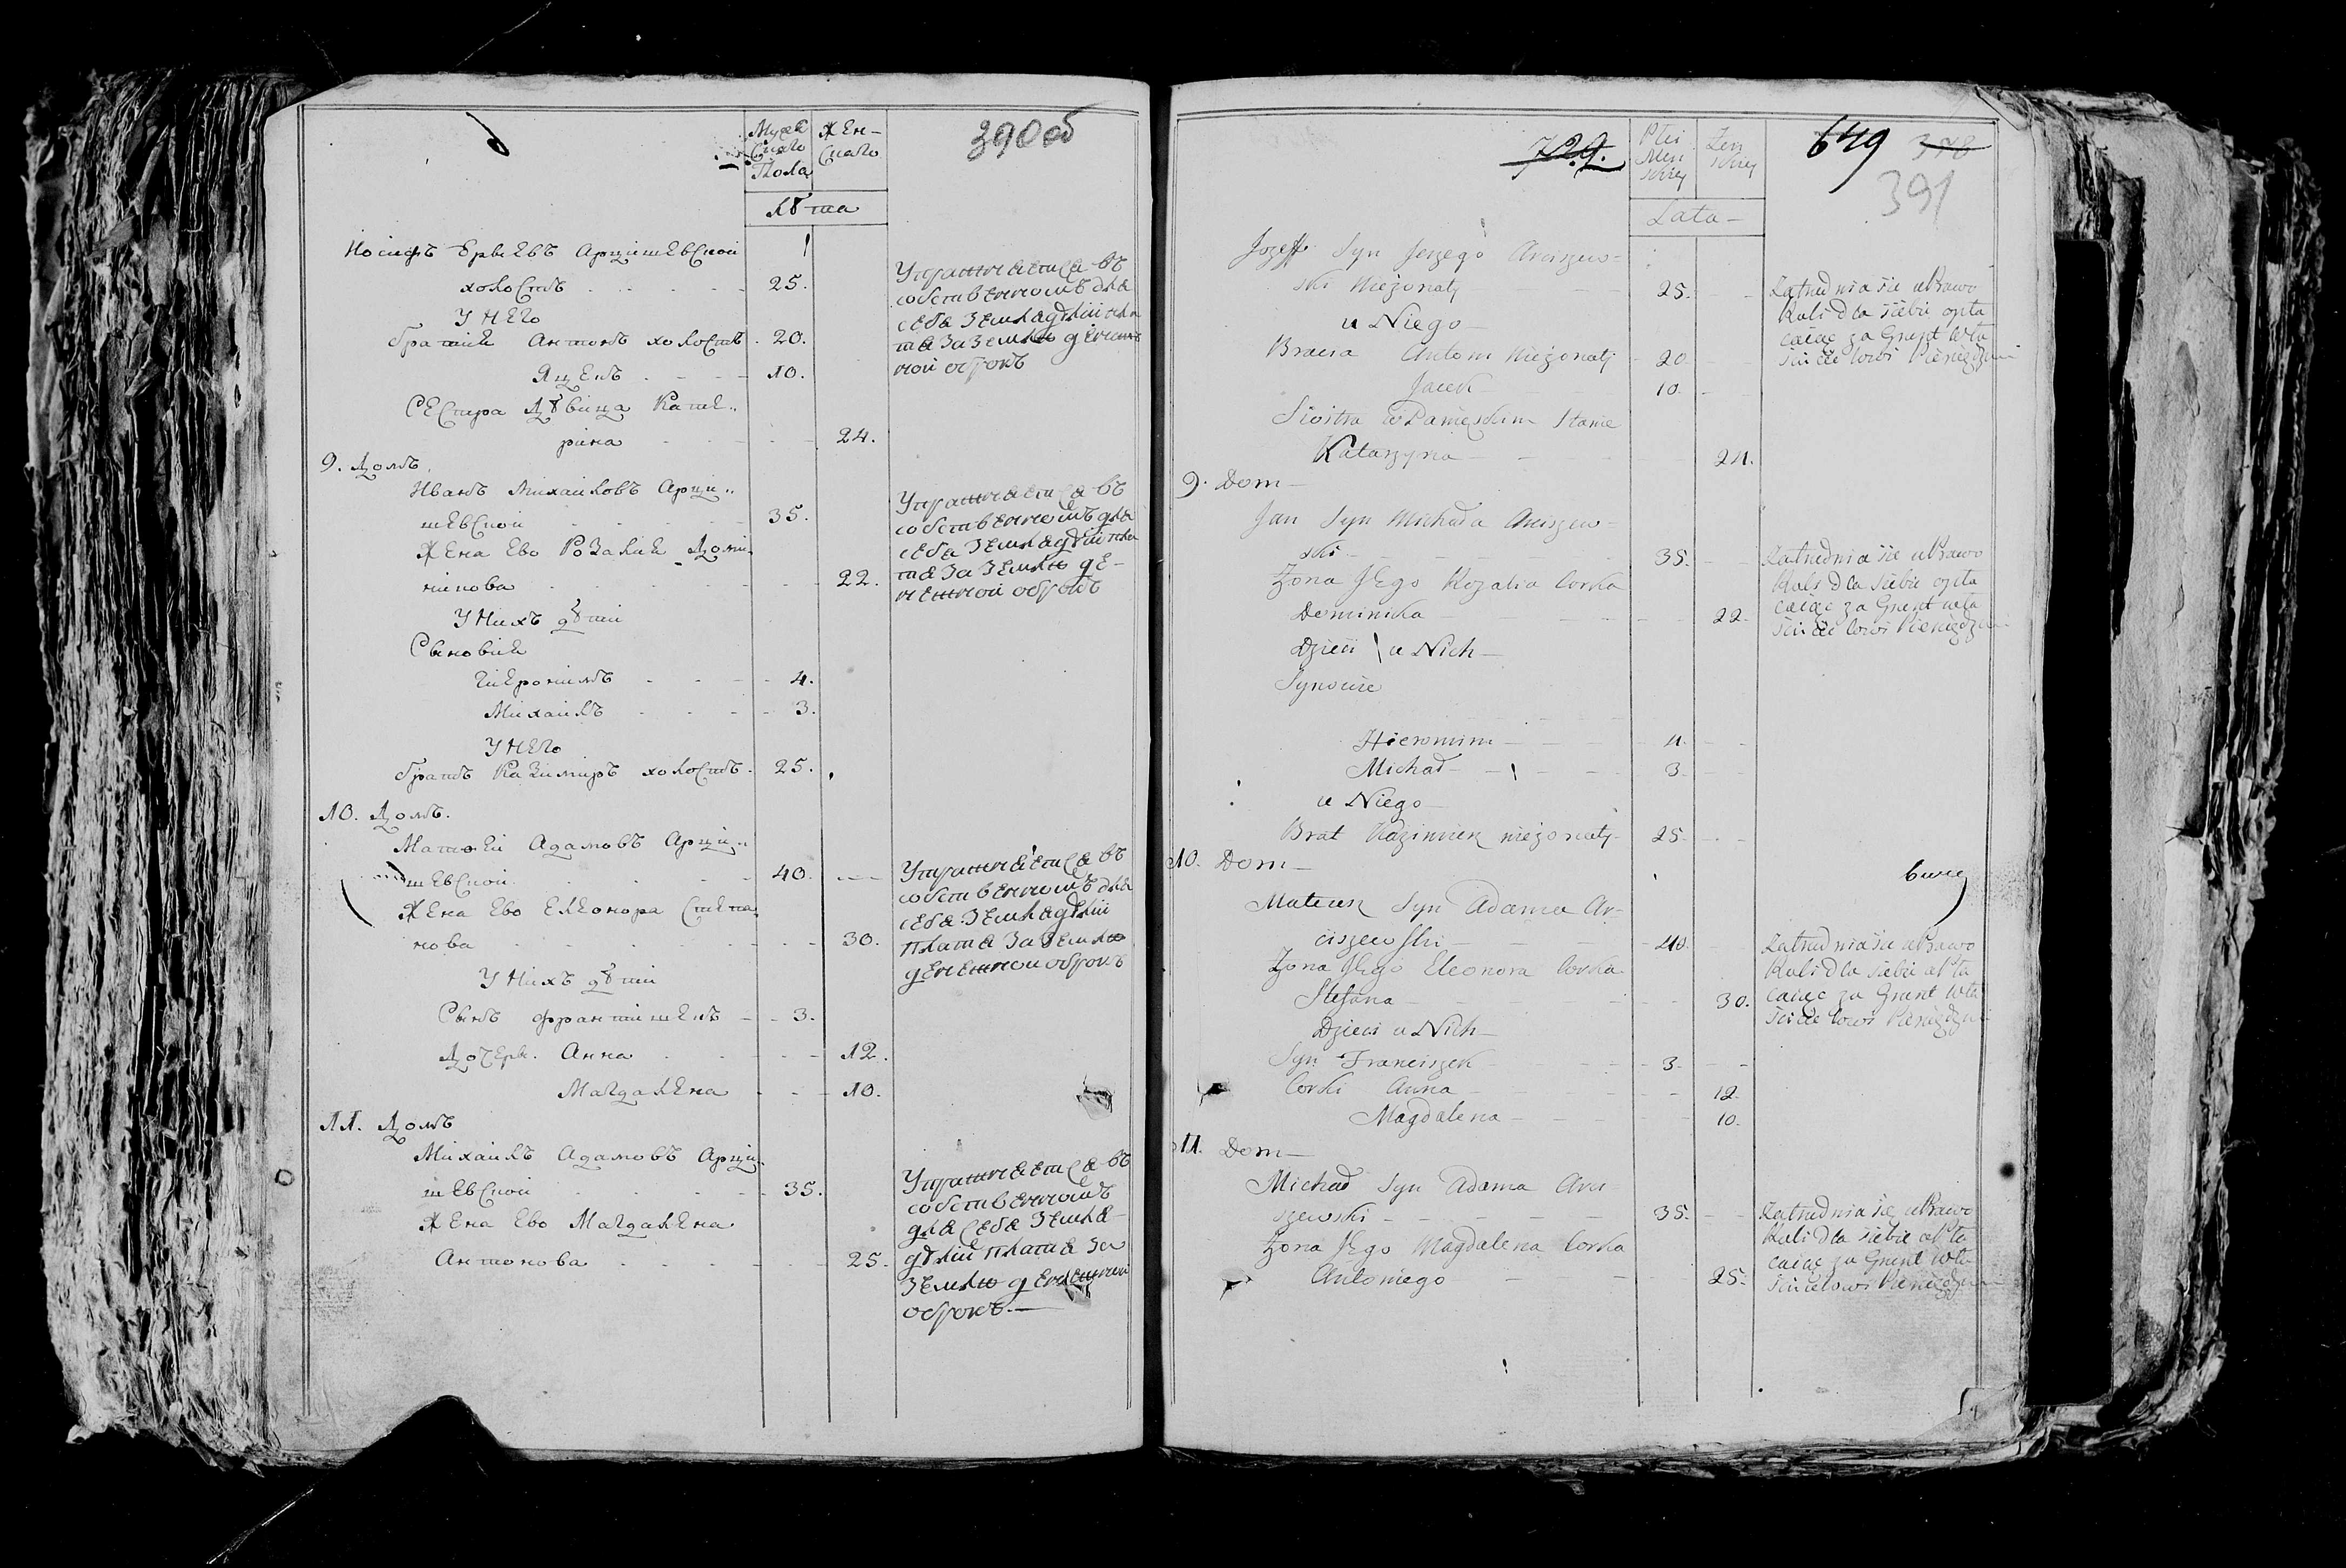 Мужс Жен-
скаго скаго
Пола
390об
лѣта
Иосифъ Ерьевъ Арцишевской
холостъ 25.
У него
братия Антонъ холостъ 20.
Яцекъ 10.
Сестра дѣвица Кате"
рина 24.
Упражняется въ
собственномъ для
себя земледѣлии пла
тя за землю денеж
ной оброкъ
9. Домъ
Иванъ Михаиловъ Арци"
шевской 35.
Жена ево Розалия Доми-
никова 22.
У нихъ дѣти
Сыновия
Гиеронимъ 4.
Михаилъ 3.
У него
братъ Казимиръ холостъ 25.
Упражняется въ
собственномъ для
себя земледѣлии пла
тя за землю де-
нежной оброкъ
10. Домъ.
Матѳей Адамовъ Арци"
шевской 40.
Жена ево Елеонора Степа
нова 30.
У нихъ дѣти
Сынъ Франтишекъ 3.
Дочерь. Анна 12.
Магдалена 10.
Упражняется въ
собственномъ для
себя земледѣлии
платя за землю
денежной оброкъ
11. Домъ
Михаилъ Адамовъ Арци-
шевской 35.
Жена ево Магдалена
Антонова 25.
Упражняется въ
собственномъ
для себя земле-
дѣлии платя за
землю денежной
оброкъ.—
729.
Płci Żeń
Męs skiey
kiey
649 348
391
Lata—
Jozeff Syn Jerzego Arciszew=
ski Nieżonaty 25.
u Niego—
Bracia Antoni Nieżonaty 20
Jacek 10.
Siostra w Panieskim Stanie
Katarzyna 24.
Zatrudnia sie uPrawo
Roli dla siebie opła
caiąc za Grunt Wła
scicielowi Pieniędzmi
9. Dom—
Jan Syn Michała Arciszew=
ski 35.
Żona JEgo Rozalia Corka
Dominika 22.
Dzieci u Nich—
Synowie
Hieronim 4.
Michał 3.
u Niego—
Brat Kazimierz nieżonaty 25.
Zatrudnia sie uPrawo
Roli dla siebie opła
caiąc za Grunt wła
scicielowi Pieniędzmi
10. Dom—
Mateusz Syn Adama Ar-
ciszewski 40.
Żona JEgo Eleonora Corka
Stefana 30.
Dzieci u Nich—
Syn Franciszek 3.
Corki Anna 12.
Magdalena 10.
Zatrudnia sie uPrawo
Roli dla siebie opła
caiąc za Grunt Wła
scicielowi Pieniędzmi
11. Dom—
Michał Syn Adama Arci=
szewski 35.
Żona JEgo Magdalena Corka
Antoniego 25.
Zatrudnia sie uPrawo
Roli dla siebie opła
caiąc za Grunt Wła
scicielowi Pieniędzmi